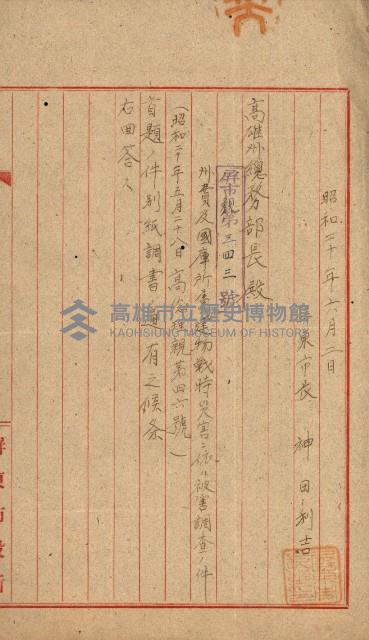 昭和二十年六月二日
東市長 神田利吉
高雄州總務部長殿
屏市親第三四三號
州費及國庫所屬建物戰時災害ニ依ル被害調查ノ件
(昭和二十年五月二十八日高 親第四六號)
首題ノ件別紙調書 有之候条
右回答ス
高雄市立歷史博物館
KAOHSIUNG MUSEUM OF HISTORY
屏東市役所